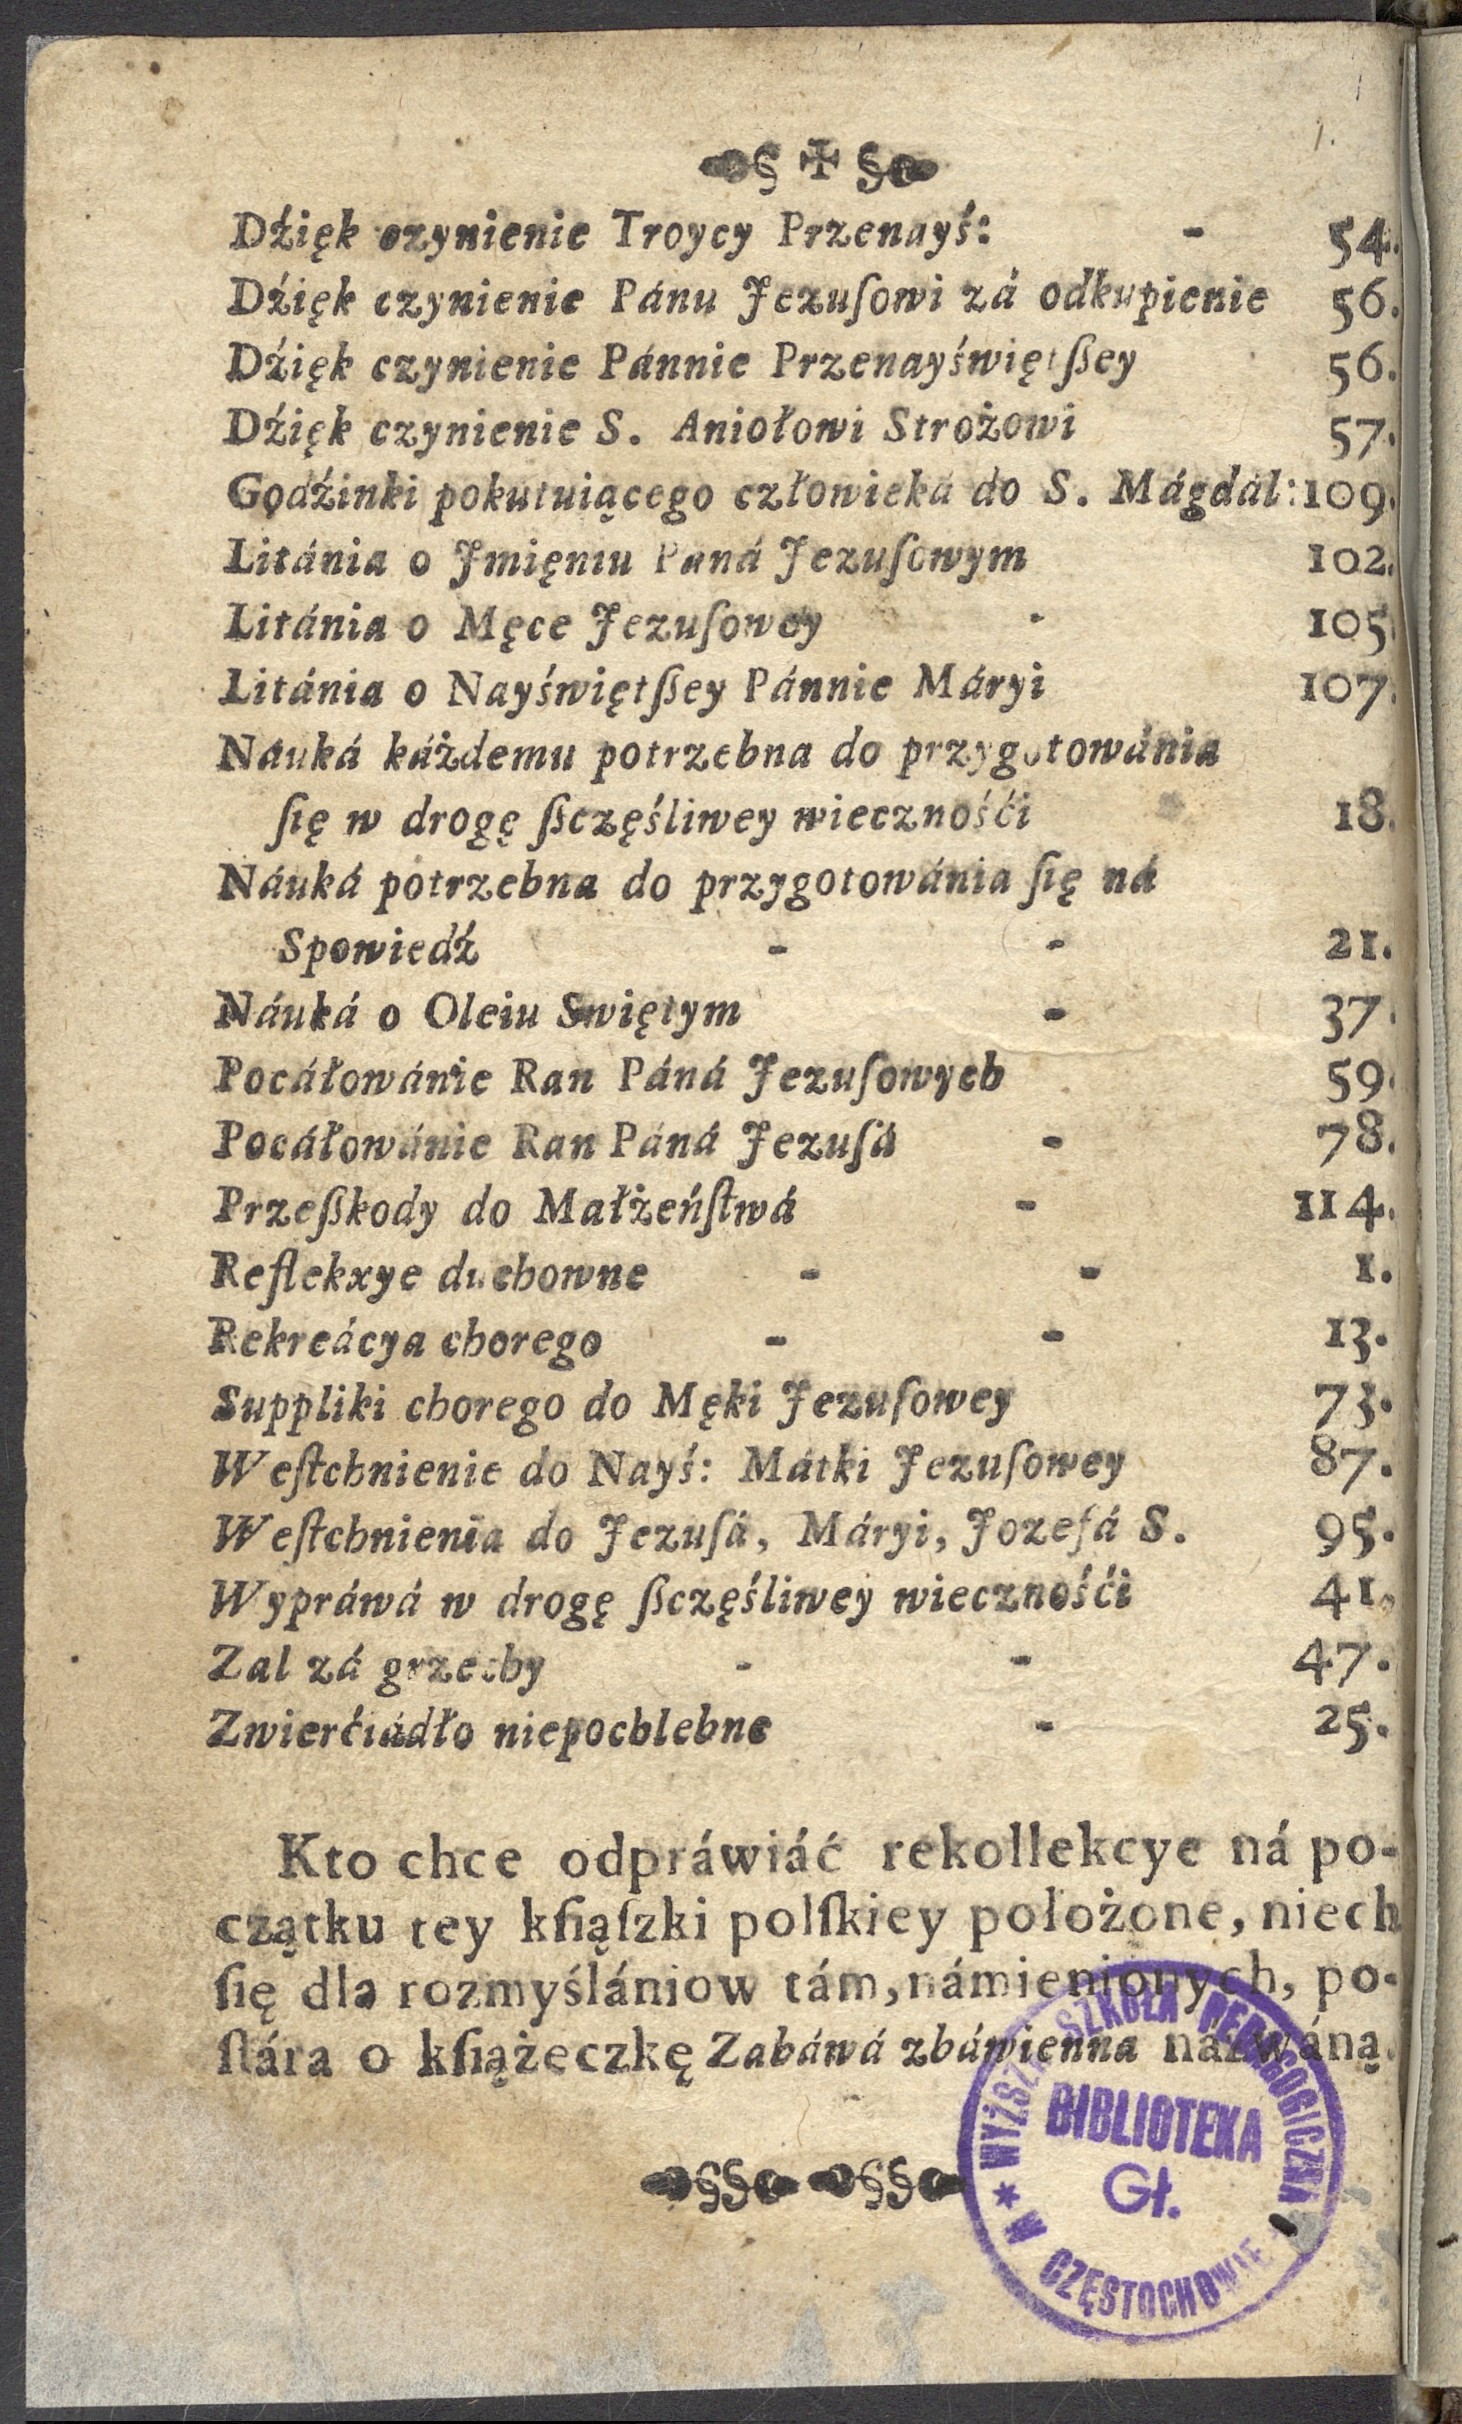 § ✠ §
Dźięk czynienie Troycy Przenayś: - 54.
Dźięk czynienie Pánu Jezuſowi zá odkupienie 56.
Dźięk czynienie Pánnie Przenayświętſzey 56.
Dźięk czynienie S. Aniołowi Strożowi 57.
Godźinki pokutuiącego człowieká do S. Mágdál: 109.
Litánia o Jmięniu Paná Jezuſowym 102.
Litánia o Męce Jezuſowey - 105.
Litánia o Nayświętſzey Pánnie Máryi 107.
Náuká káżdemu potrzebna do przygotowánia
ſię w drogę ſzczęśliwey wiecznośći 18.
Náuká potrzebna do przygotowánia ſię ná
Spowiedź - - 21.
Náuká o Oleiu Swiętym - 37.
Pocáłowánie Ran Páná Jezuſowych 59.
Pocáłowánie Ran Páná Jezuſá - 78.
Przeſzkody do Małżeńſtwá - 114.
Reflekxye duchowne - - 1.
Rekreácya chorego - - 13.
Suppliki chorego do Męki Jezuſowey 73.
Weſtchnienie do Nayś: Mátki Jezuſowey 87.
Weſtchnienia do Jezuſá, Máryi, Jozefá S. 95.
Wypráwá w drogę ſzczęśliwey wiecznośći 41.
Zal zá grzechy - - 47.
Zwierćiádło niepochlebne - 25.
Kto chce odpráwiáć rekollekcye ná po-
czątku tey kſiąſzki polſkiey położone, niech
ſię dla rozmyślániow tám, námienionych, po-
ſtára o kſiążeczkę Zabáwá zbáwienna názwáną.
§§ §§
WYŻSZA SZKOŁA PEDAGOGICZNA
BIBLIOTEKA
Gł.
* W CZĘSTOCHOWIE